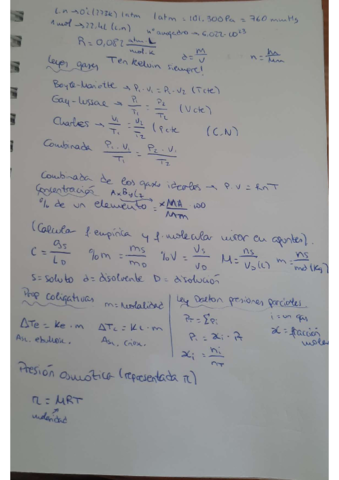 C.N → 0º(273K) 1atm 1atm = 101.300Pa = 760 mmHg
1 mol → 22,4L (C.N) nº avogadro → 6,022·10²³
R = 0,082 atm·L / mol·K d = m/V n = m/Mm
Leyes gases T en Kelvin siempre!
Boyle-Mariotte → P₁·V₁ = P₂·V₂ (Tcte)
Gay-Lussac → P₁/T₁ = P₂/T₂ (Vcte)
Charles → V₁/T₁ = V₂/T₂ (Pcte) (C.N)
Combinada P₁·V₁/T₁ = P₂·V₂/T₂
Combinada de los gases ideales → P·V = RnT
Concentración
% de un elemento = ·MA/Mm · 100
(Calcular f. empírica y f. molecular mirar en apuntes).
%m = ms/mD %V = Vs/VD M = ns/VD(L) m = ns/md(Kg)
s = soluto d = disolvente D = disolución
Prop coligativas m = molalidad
ΔTe = Ke·m ΔTc = Kc·m
Ley Dalton presiones parciales
i = un gas
Pi = xi·P
x = fracción molar
xi = ni/nT
Presión osmótica (representada π)
π = MRT
molaridad